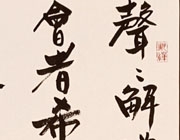 聲〻解
會者希